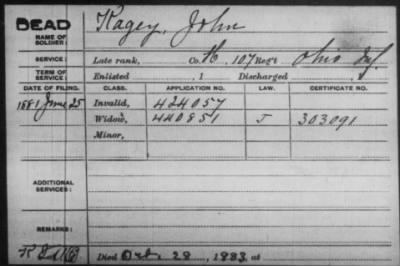 DEAD Kagey, John
NAME OF SOLDIER:
SERVICE: Late rank, Co. H, 107 Reg't Ohio Inf.
TERM OF SERVICE: Enlisted , 1 Discharged , 1
DATE OF FILING. CLASS. APPLICATION NO. LAW. CERTIFICATE NO.
1881 June 25 Invalid, 424057
Widow, 440851 J 303091
Minor,
ADDITIONAL SERVICES:
REMARKS:
Died Oct. 28, 1883, at